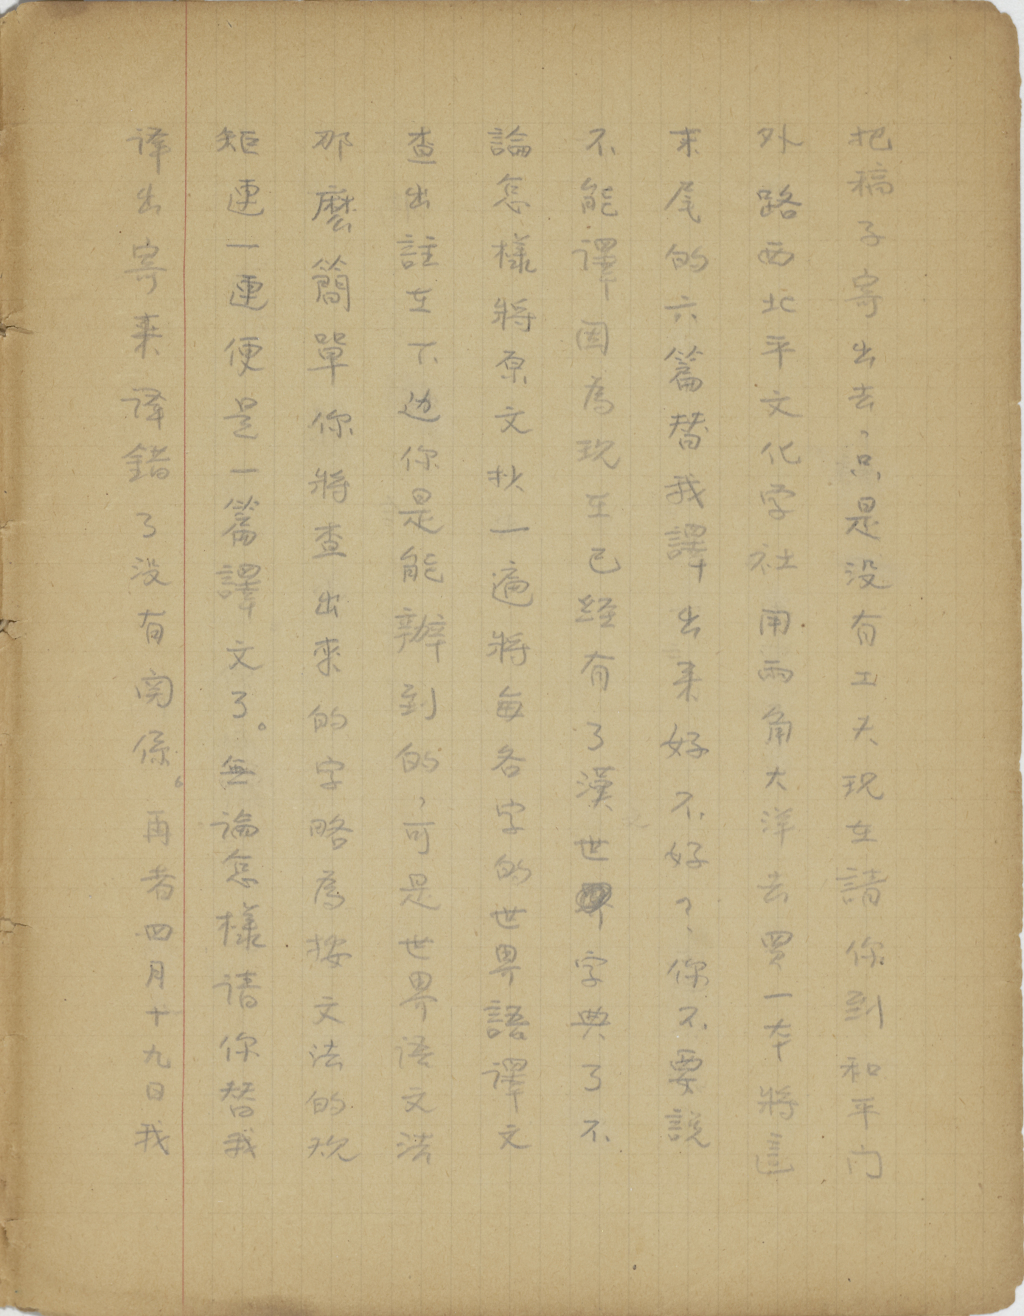 把稿子寄出去，只是没有工夫现在請你到和平门
外路西北平文化学社用两角大洋去買一本將這
末尾的六篇替我譯出来好不好？你不要説
不能譯因為現在已経有了漢世界字典了不
論怎樣將原文抄一遍將每各字的世界語譯文
查出註在下边你是能辦到的，可是世界语文法
那麽簡單你將查出來的字略為按文法的规
矩連一連便是一篇譯文了。無論怎樣请你替我
译出寄来译错了没有関係。再者四月十九日我